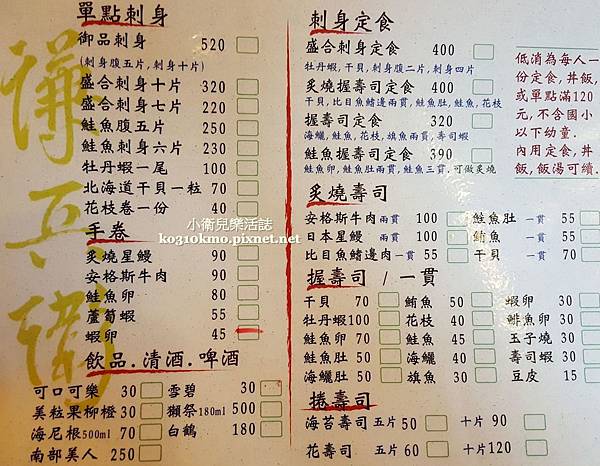 單點刺身
御品刺身 520
(刺身腹五片,刺身十片)
盛合刺身十片 320
盛合刺身七片 220
鮭魚腹五片 250
鮭魚刺身六片 230
牡丹蝦一尾 100
北海道干貝一粒 70
花枝卷一份 40
手卷
炙燒星鰻 90
安格斯牛肉 90
鮭魚卵 80
蘆筍蝦 55
蝦卵 45
飲品.清酒.啤酒
可口可樂 30 雪碧 30
美粒果柳橙 30 獺祭180ml 500
海尼根500ml 70 白鶴 180
南部美人 250
刺身定食
盛合刺身定食 400
牡丹蝦,干貝,刺身腹二片,刺身四片
炙燒握壽司定食 400
干貝,比目魚鰭邊兩貫,鮭魚肚,鮭魚,花枝
握壽司定食 320
海鱺,鮭魚,花枝,旗魚兩貫,壽司蝦
鮭魚握壽司定食 390
鮭魚卵,鮭魚肚兩貫,鮭魚三貫,可做炙燒
低消為每人一
份定食,丼飯,
或單點滿120
元,不含國小
以下幼童.
內用定食,丼
飯,飯湯可續.
炙燒壽司
安格斯牛肉 兩貫 100 鮭魚肚 一貫 55
日本星鰻 兩貫 100 鮪魚 一貫 55
比目魚鰭邊肉 一貫 55 干貝 一貫 70
握壽司 / 一貫
干貝 70 鮪魚 50 蝦卵 30
牡丹蝦100 花枝 40 鯡魚卵 30
鮭魚卵 70 鮭魚 45 玉子燒 30
鮭魚肚 50 海鱺 40 壽司蝦 30
海鱺肚 50 旗魚 30 豆皮 15
捲壽司
海苔壽司 五片 50 十片 90
花壽司 五片 60 十片 120
小衛兒樂活誌
ko310kmo.pixnet.net